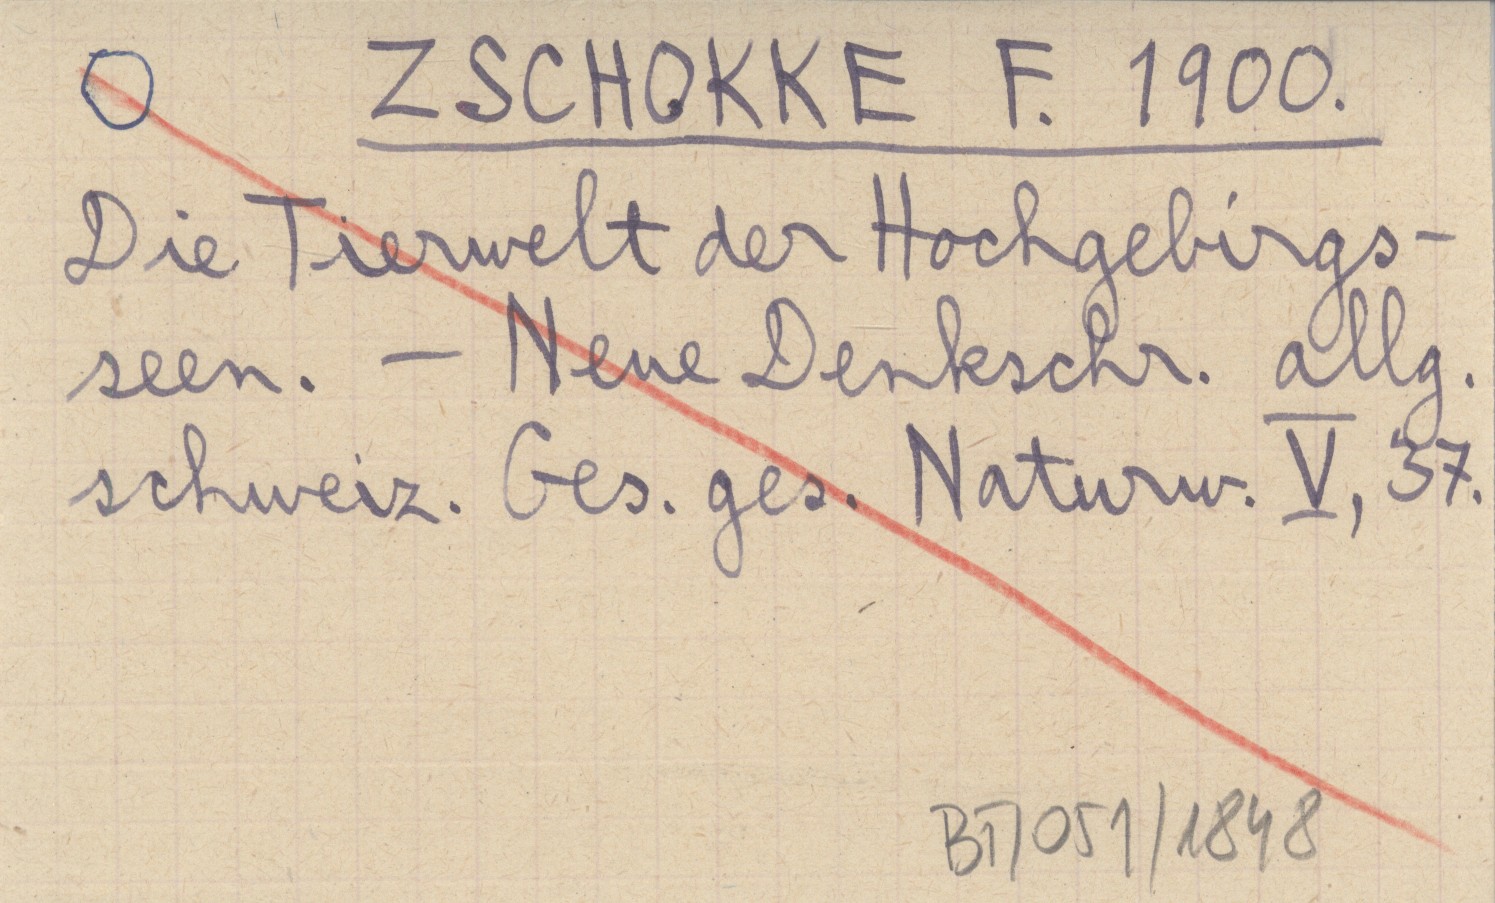 ZSCHOKKE F. 1900.
Die Tierwelt der Hochgebirgs-
seen. — Neue Denkschr. allg.
schweiz. Ges. ges. Naturw. V, 37.
BT/051/1848